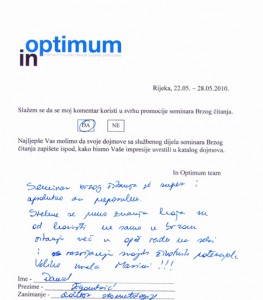 optimum
in
Rijeka, 22.05. – 28.05.2010.
Slažem se da se moj komentar koristi u svrhu promocije seminara Brzog čitanja.
DA NE
Najljepše Vas molimo da svoje dojmove sa službenog dijela seminara Brzog
čitanja zapišete ispod, kako bismo Vaše impresije uvrstili u katalog dojmova.
In Optimum team
Seminar brzog čitanja je super i
apsolutno za preporuku.
Stekne se puno znanja koja su
od koristi ne samo u brzom
čitanju već u opće radu na sebi
i
Veliko hvala
Ime - David
Prezime -
Zanimanje - doktor stomatologije